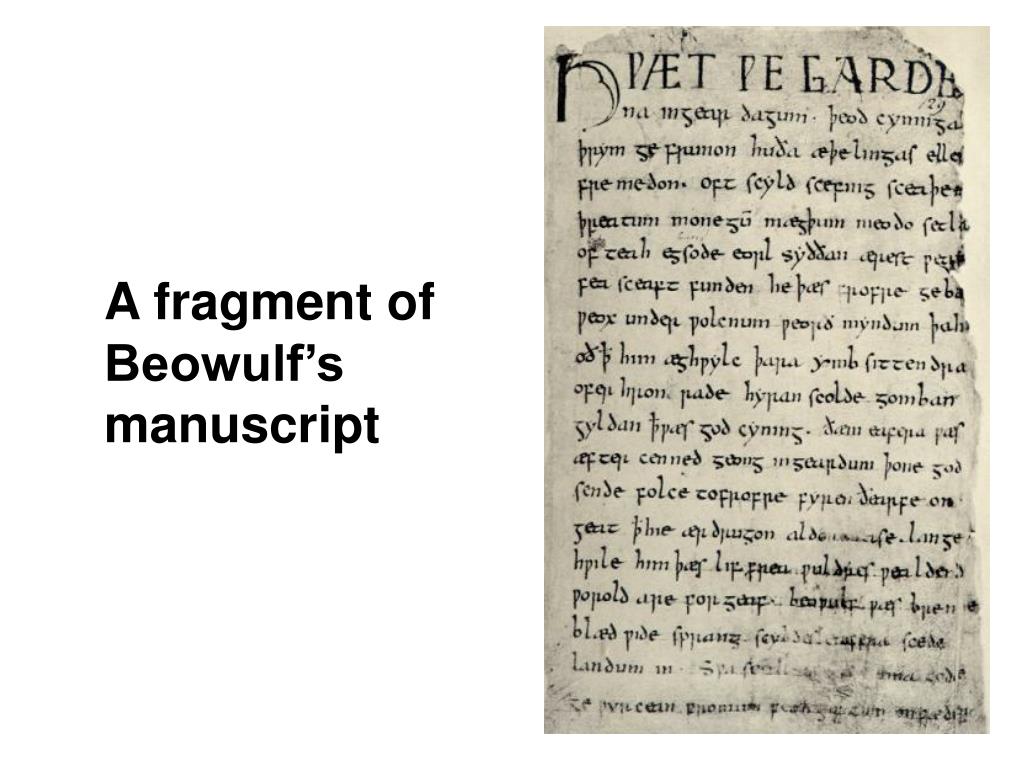 A fragment of
Beowulf’s
manuscript
HǷÆT ǷE GARDE
129
na ingear dagum. þeod cyninga
þrym ge frunon huða æþelingas elle
fremedon. oft scyld scefing sceaþe
þreatum monegū mægþum meodo setla
of teah egsode eorl syððan ærest ƿear
fea sceaft funden he þæs frofre geba
ƿeox under ƿolcnum ƿeorð myndum þah
oð ꝥ him æghƿylc þara ymb sittendra
ofer hron rade hyran scolde gomban
gyldan ꝥ ƿæs god cyning. ðæm eafera ƿæs
æfter cenned geong in geardum þone god
sende folce tofrofre fyren ðearfe on
geat ꝥ hie ær drugon aldor se. lange
hƿile him þæs lif frea ƿuldres ƿealdend
ƿorold are forgeaf. beoƿulf ƿæs breme
blæd ƿide sprang scyldes eafera scede
landum in. Sƿa
ge ƿyrcean fromum